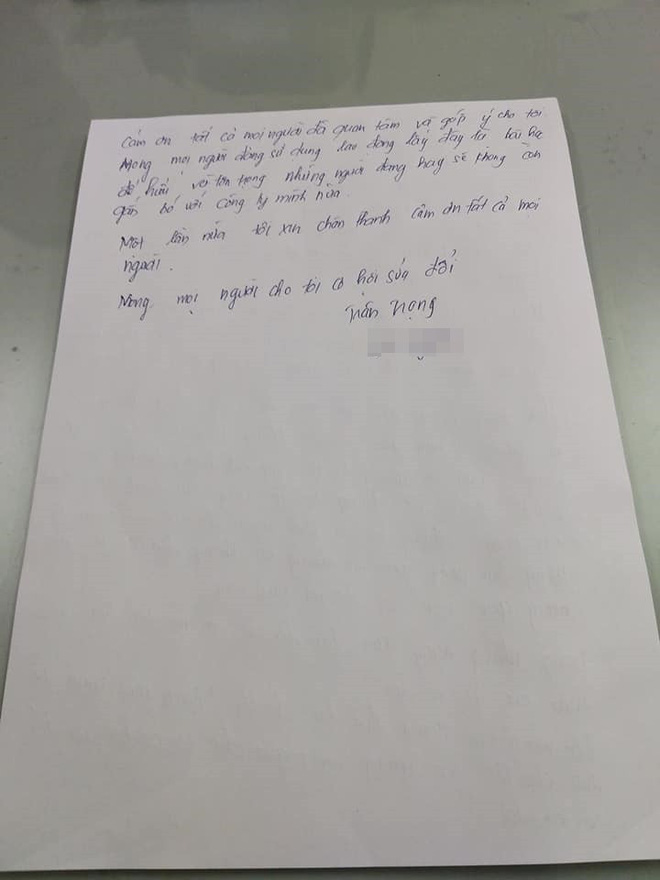 Cảm ơn tất cả mọi người đã quan tâm và góp ý cho tôi
Mong mọi người dùng sử dụng lao động lấy đây là bài học
để hiểu và tôn trọng những người đang hay sẽ không còn
gắn bó với công ty mình nữa.
Một lần nữa tôi xin chân thành cảm ơn tất cả mọi
người.
Mong mọi người cho tôi cơ hội sửa đổi
Trân trọng